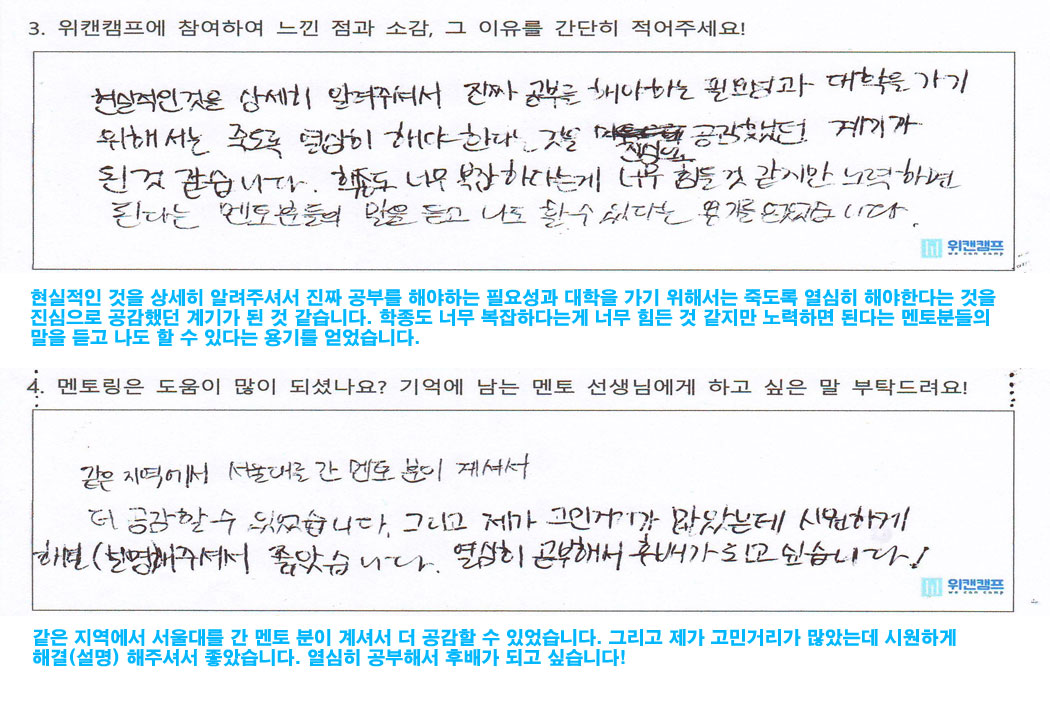 3. 위캔캠프에 참여하여 느낀 점과 소감, 그 이유를 간단히 적어주세요!
현실적인것을 상세히 알려주셔서 진짜 공부를 해야하는 필요성과 대학을 가기
위해서는 죽도록 열심히 해야한다는 것을 진심으로 공감했던 계기가
된것 같습니다. 학종도 너무 복잡하다는게 너무 힘든것 같지만 노력하면
된다는 멘토분들의 말을 듣고 나도 할수 있다는 용기를 얻었습니다.
위캔캠프
we can camp
현실적인 것을 상세히 알려주셔서 진짜 공부를 해야하는 필요성과 대학을 가기 위해서는 죽도록 열심히 해야한다는 것을
진심으로 공감했던 계기가 된 것 같습니다. 학종도 너무 복잡하다는게 너무 힘든 것 같지만 노력하면 된다는 멘토분들의
말을 듣고 나도 할 수 있다는 용기를 얻었습니다.
4. 멘토링은 도움이 많이 되셨나요? 기억에 남는 멘토 선생님에게 하고 싶은 말 부탁드려요!
같은 지역에서 서울대를 간 멘토 분이 계셔서
더 공감할 수 있었습니다. 그리고 제가 고민거리가 많았는데 시원하게
해결(설명)해주셔서 좋았습니다. 열심히 공부해서 후배가 되고 싶습니다!
위캔캠프
we can camp
같은 지역에서 서울대를 간 멘토 분이 계셔서 더 공감할 수 있었습니다. 그리고 제가 고민거리가 많았는데 시원하게
해결(설명) 해주셔서 좋았습니다. 열심히 공부해서 후배가 되고 싶습니다!